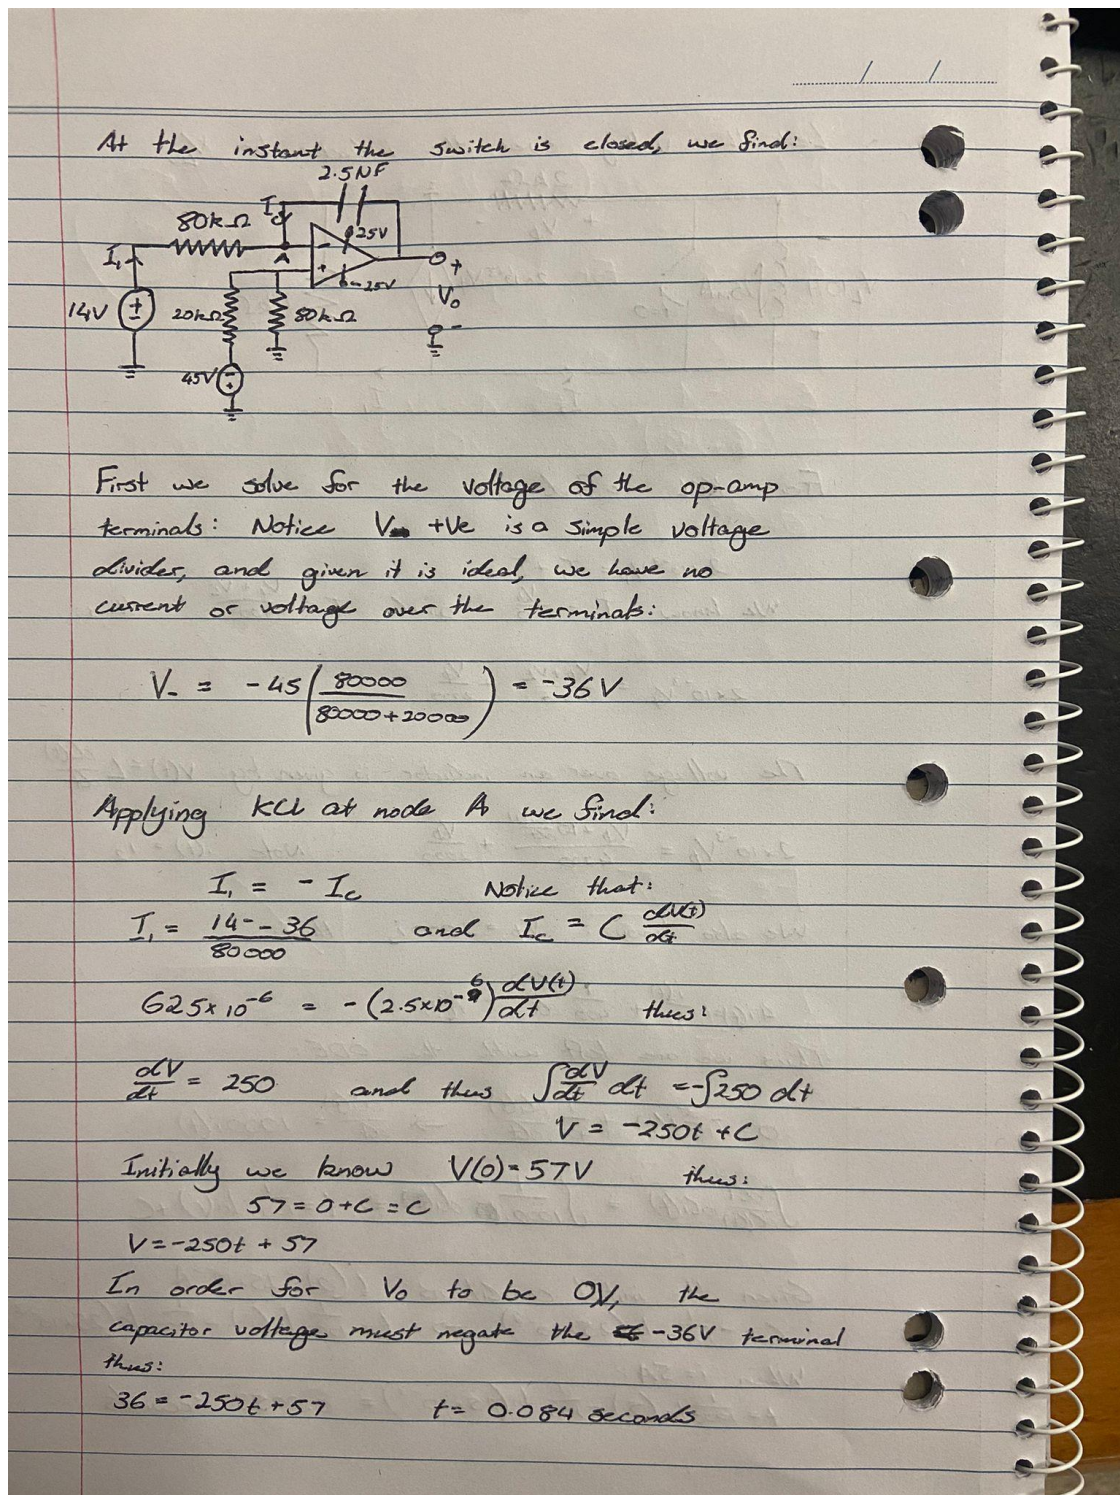 / /
At the instant the switch is closed, we find:
2.5NF
80kΩ
Ic
25V
I₁
A
-
+
-25V
+
14V
+
-
20kΩ
80kΩ
Vo
-
45V
-
+
First we solve for the voltage of the op-amp
terminals: Notice +Ve is a simple voltage
divider, and given it is ideal, we have no
current or voltage over the terminals:
V₋ = -45(80000/(80000+20000)) = -36V
Applying KCL at node A we find:
I₁ = - Ic Notice that:
I₁ = (14--36)/80000 and Ic = C dV(t)/dt
625×10⁻⁶ = -(2.5×10⁻⁶) dV(t)/dt thus:
dV/dt = 250 and thus ∫dV/dt dt = -∫250 dt
V = -250t + C
Initially we know V(0) = 57V thus:
57 = 0 + C = C
V = -250t + 57
In order for Vo to be 0V, the
capacitor voltage must negate the -36V terminal
thus:
36 = -250t + 57 t = 0.084 seconds